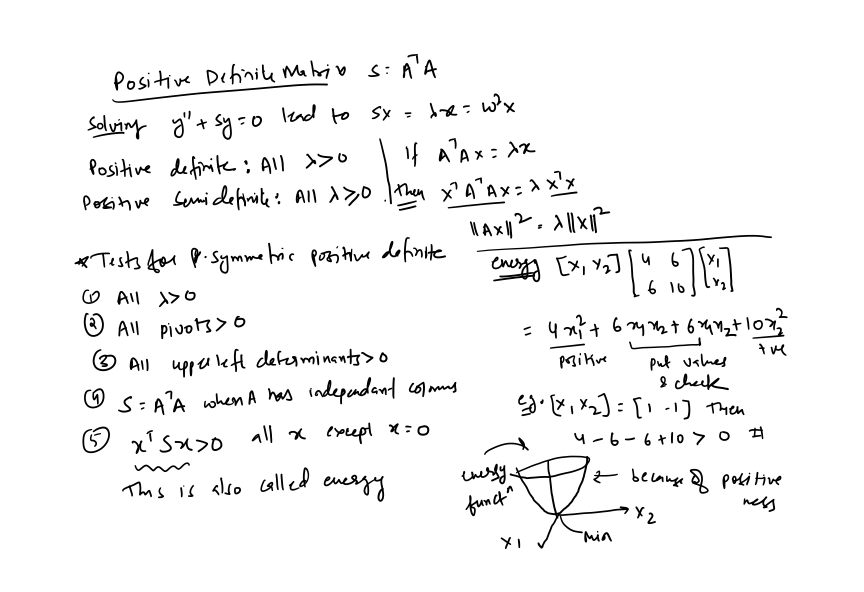 Positive Definite Matrix S = AᵀA
Solving y'' + Sy = 0 lead to Sx = λx = ω²x
Positive definite : All λ>0
Positive Semidefinite : All λ≥0.
If AᵀAx = λx
then xᵀAᵀAx = λ xᵀx
||Ax||² = λ||x||²
* Tests for symmetric positive definite
① All λ>0
② All pivots>0
③ All upper left determinants>0
④ S = AᵀA when A has independant columns
⑤ xᵀSx>0 all x except x=0
This is also called energy
energy [x₁ x₂] [4 6; 6 10] [x₁; x₂]
= 4x₁² + 6x₁x₂ + 6x₁x₂ + 10x₂²
positive put values +ve
& check
eg. [x₁ x₂] = [1 -1] Then
4 - 6 - 6 + 10 > 0 #
energy
functⁿ
← because of positive
ness
x₂
x₁
min